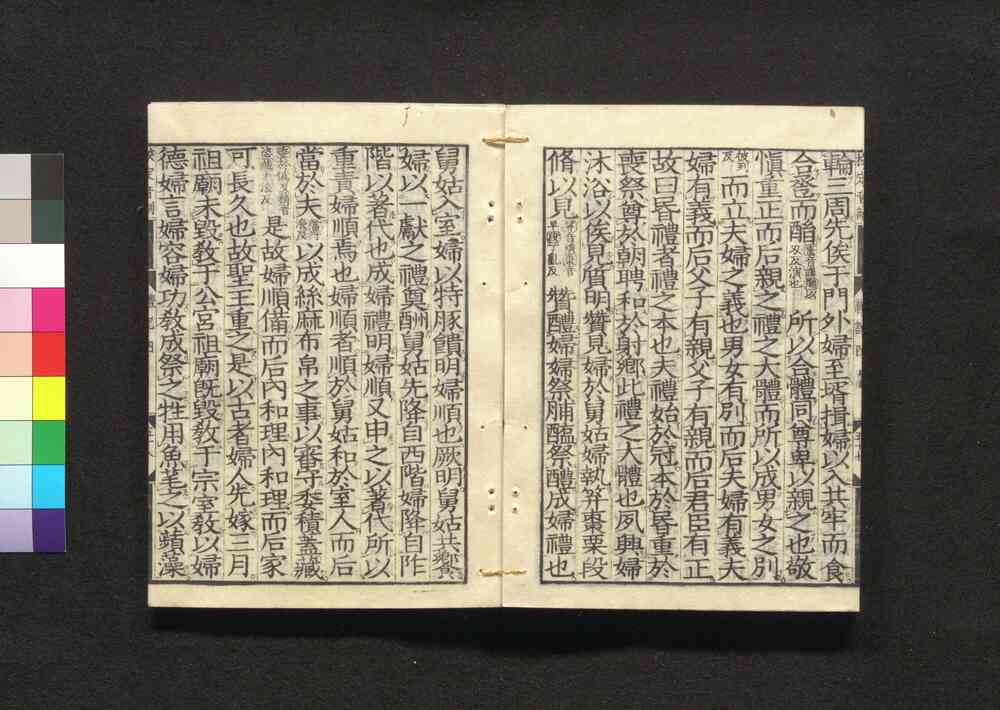 輪三周先俟于門外婦至壻揖婦以入共牢而食
合巹而酳所以合體同尊卑以親之也敬
愼重正而后親之禮之大體而所以成男女之別
彼列反而立夫婦之義也男女有別而后夫婦有義夫
婦有義而后父子有親父子有親而后君臣有正
故曰昬禮者禮之本也夫禮始於冠本於昬重於
喪祭尊於朝聘和於射鄕此禮之大體也夙興婦
沐浴以俟見質明贊見婦於舅姑婦執笲棗栗段
脩以見贊醴婦婦祭脯醢祭醴成婦禮也
舅姑入室婦以特豚饋明婦順也厥明舅姑共饗
婦以一獻之禮奠酬舅姑先降自西階婦降自阼
階以著代也成婦禮明婦順又申之以著代所以
重責婦順焉也婦順者順於舅姑和於室人而后
當於夫以成絲麻布帛之事以審守委積蓋藏
是故婦順備而后內和理內和理而后家
可長久也故聖王重之是以古者婦人先嫁三月
祖廟未毀敎于公宮祖廟旣毀敎于宗室敎以婦
德婦言婦容婦功敎成祭之牲用魚芼之以蘋藻